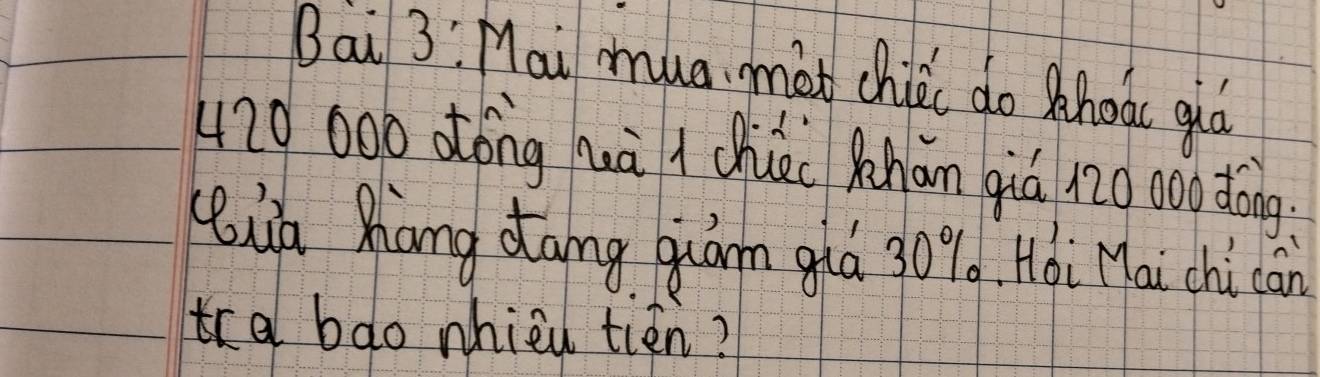 Bài 3: Mai mua một chiếc áo khoác giá
420 000 đồng và 1 chiếc khăn giá 120 000 đồng.
Cửa hàng đang giảm giá 30%. Hỏi Mai chỉ cần
trả bao nhiêu tiền?